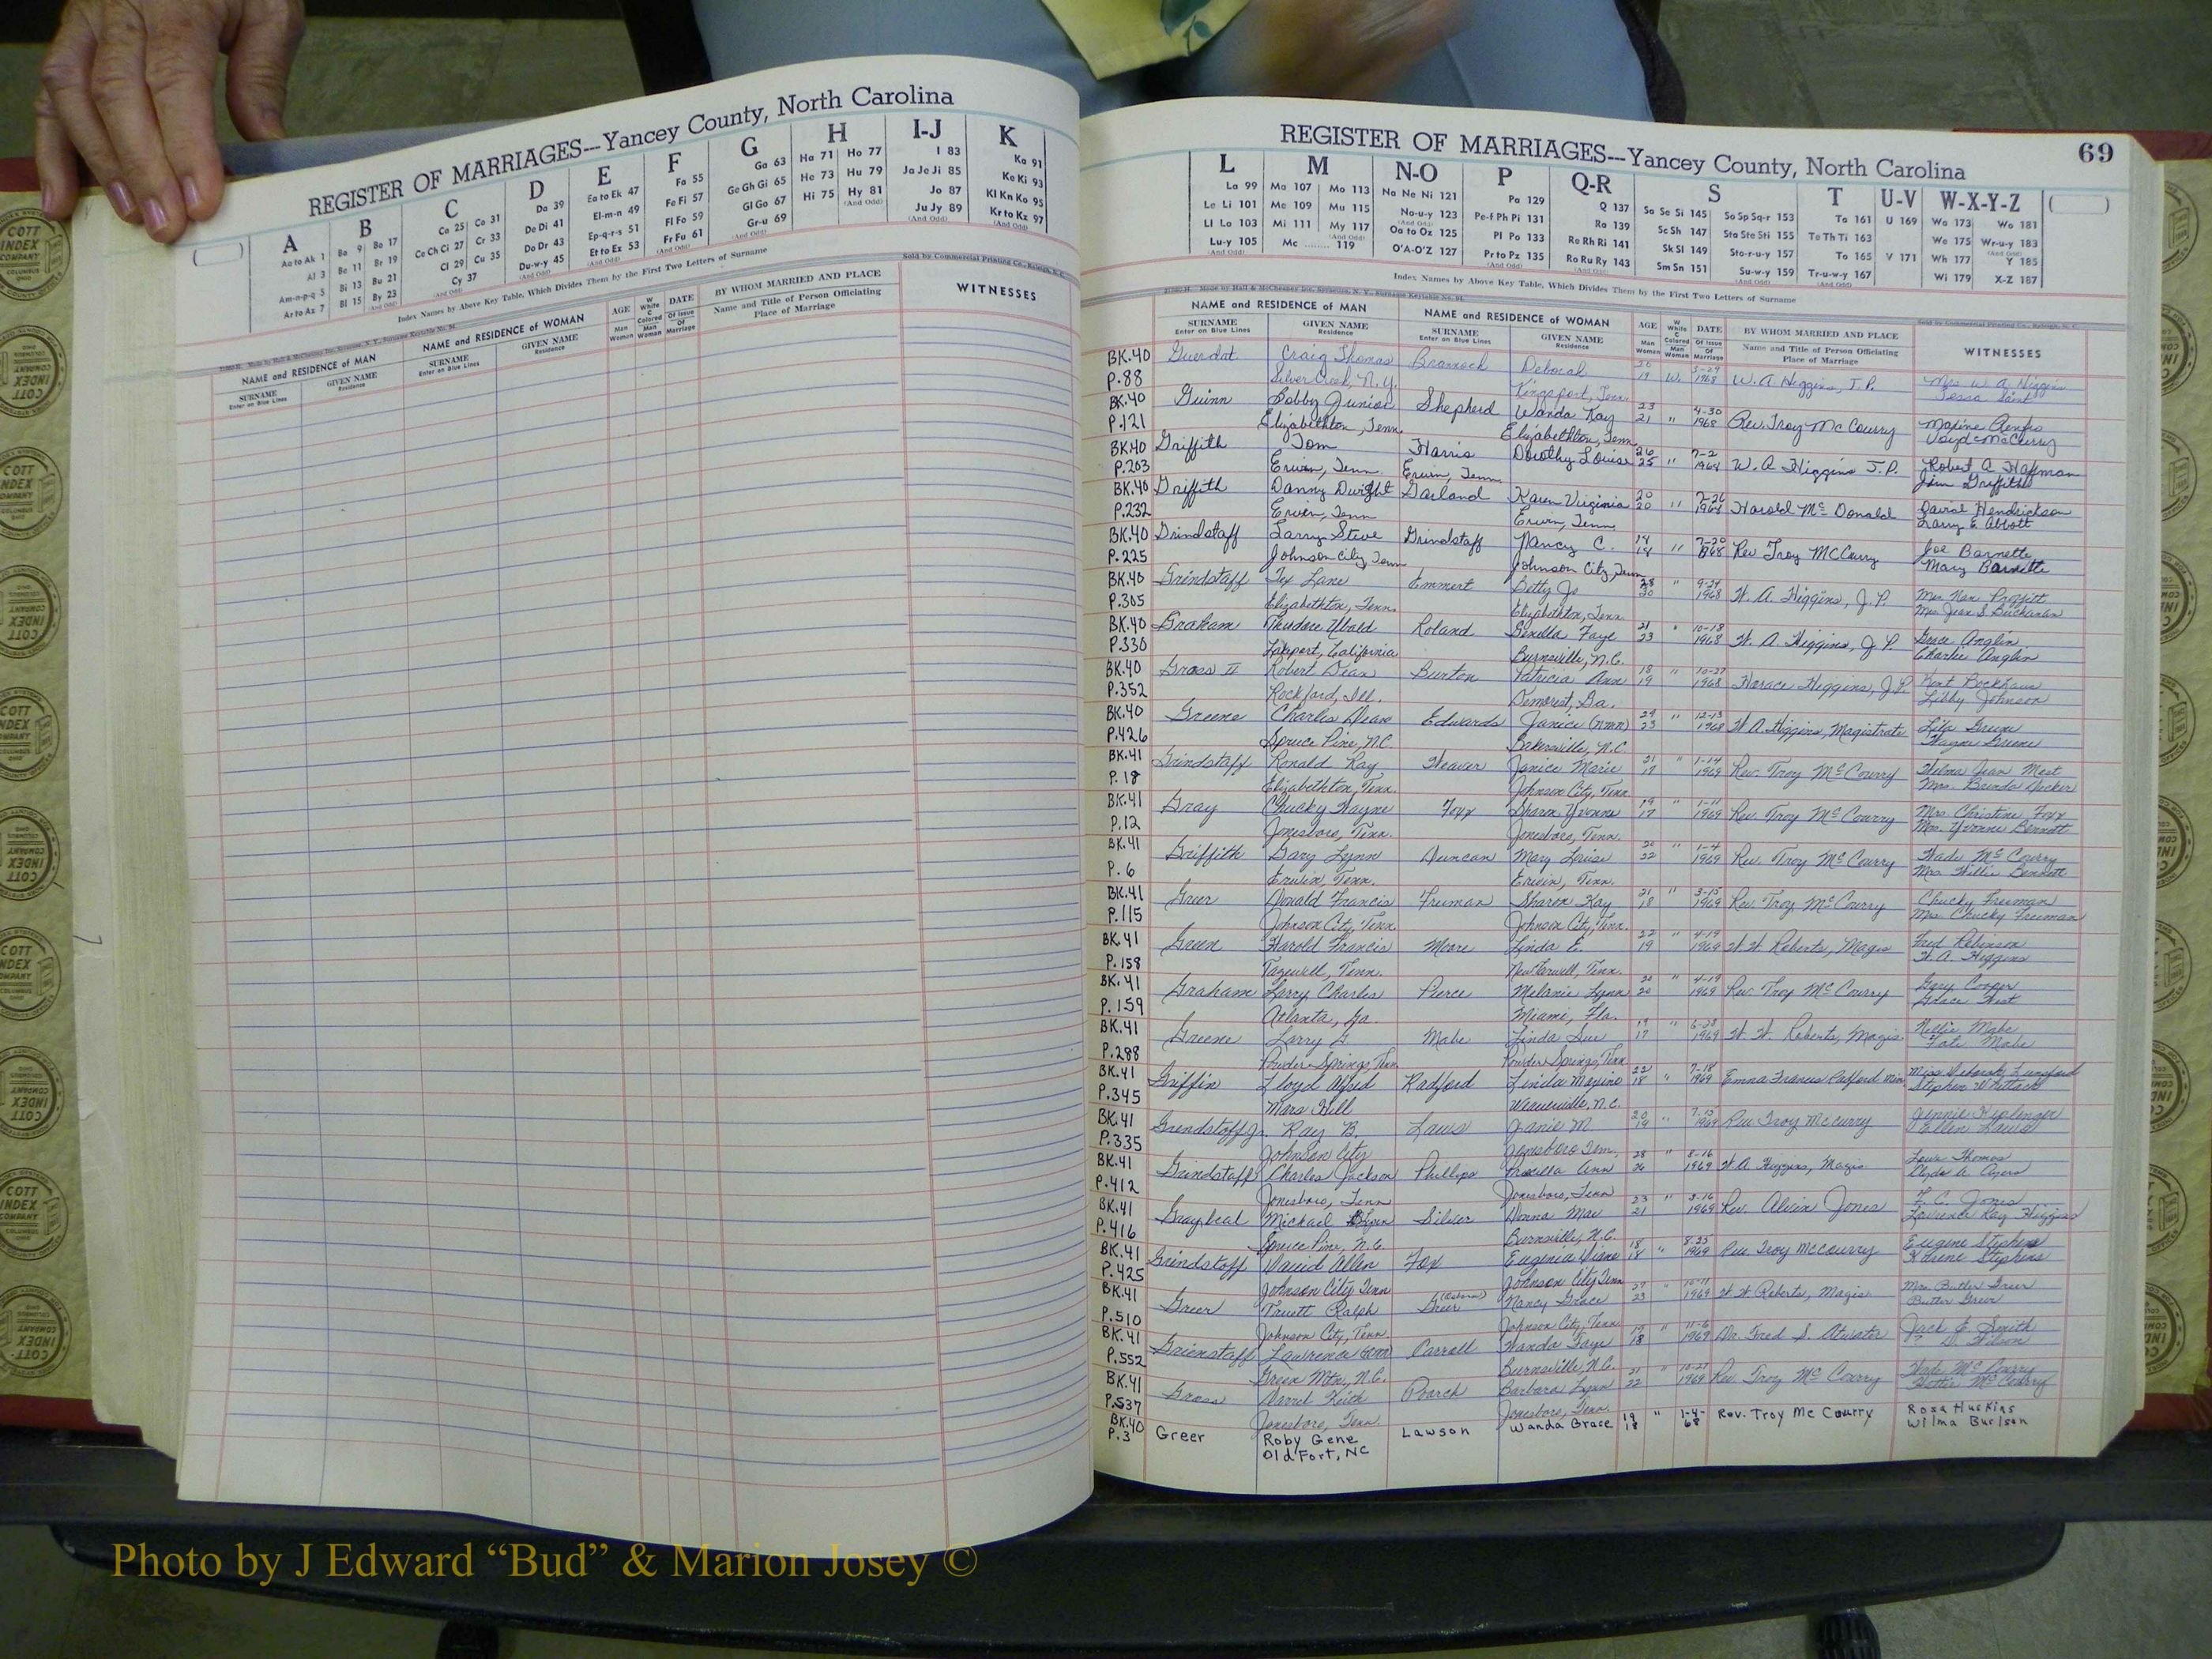 REGISTER OF MARRIAGES---Yancey County, North Carolina
A B C D E F G H I-J K
Aa to Ak 1
Al 3
Am-n-p-q 5
Ar to Az 7
Ba 9 Bo 17
Be 11 Br 19
Bi 13 Bu 21
Bl 15 By 23
(And Odd)
Ca 25 Co 31
Ce Ch Ci 27 Cr 33
Cl 29 Cu 35
Cy 37
(And Odd)
Da 39
De Di 41
Do Dr 43
Du-w-y 45
(And Odd)
Ea to Ek 47
El-m-n 49
Ep-q-r-s 51
Et to Ez 53
(And Odd)
Fa 55
Fe Fi 57
Fl Fo 59
Fr Fu 61
(And Odd)
Ga 63
Ge Gh Gi 65
Gl Go 67
Gr-u 69
(And Odd)
Ha 71 Ho 77
He 73 Hu 79
Hi 75 Hy 81
(And Odd)
I 83
Ja Je Ji 85
Jo 87
Ju Jy 89
(And Odd)
Ka 91
Ke Ki 93
Kl Kn Ko 95
Kr to Kz 97
(And Odd)
Index Names by Above Key Table, Which Divides Them by the First Two Letters of Surname
Sold by Commercial Printing Co., Raleigh, N. C.
NAME and RESIDENCE of MAN
SURNAME
Enter on Blue Lines
GIVEN NAME
Residence
NAME and RESIDENCE of WOMAN
SURNAME
Enter on Blue Lines
GIVEN NAME
Residence
AGE
Man
Woman
W
White
C
Colored
Man
Woman
DATE
Of Issue
Of
Marriage
BY WHOM MARRIED AND PLACE
Name and Title of Person Officiating
Place of Marriage
WITNESSES
REGISTER OF MARRIAGES---Yancey County, North Carolina
69
L M N-O P Q-R S T U-V W-X-Y-Z
La 99
Le Li 101
Ll Lo 103
Lu-y 105
(And Odd)
Ma 107 Mo 113
Me 109 Mu 115
Mi 111 My 117
(And Odd)
Mc 119
Na Ne Ni 121
No-u-y 123
(And Odd)
Oa to Oz 125
O'A-O'Z 127
Pa 129
Pe-f Ph Pi 131
Pl Po 133
Pr to Pz 135
(And Odd)
Q 137
Ra 139
Re Rh Ri 141
Ro Ru Ry 143
(And Odd)
Sa Se Si 145 So Sp Sq-r 153
Sc Sh 147 Sta Ste Sti 155
Sk Sl 149 Sto-r-u-y 157
Sm Sn 151 Su-w-y 159
(And Odd)
Ta 161
Te Th Ti 163
To 165
Tr-u-w-y 167
(And Odd)
U 169
V 171
Wa 173 Wo 181
We 175 Wr-u-y 183
(And Odd)
Wh 177 Y 185
Wi 179 X-Z 187
Index Names by Above Key Table, Which Divides Them by the First Two Letters of Surname
Sold by Commercial Printing Co., Raleigh, N. C.
NAME and RESIDENCE of MAN
SURNAME
Enter on Blue Lines
GIVEN NAME
Residence
NAME and RESIDENCE of WOMAN
SURNAME
Enter on Blue Lines
GIVEN NAME
Residence
AGE
Man
Woman
W
White
C
Colored
Man
Woman
DATE
Of Issue
Of
Marriage
BY WHOM MARRIED AND PLACE
Name and Title of Person Officiating
Place of Marriage
WITNESSES
BK.40 Guerdat Craig Thomas Deborah 19 W. 1968 W. A Higgins, J.P. Mrs W. A. Higgins
P.88 Silver Creek, N.Y. Kingsport, Tenn.
BK.40 Guinn Bobby Junior Shepherd Wanda Kay 23 21 " 4-30 1968 Rev. Troy McCourry Maxine
P.121 Elizabethton, Tenn. Elizabethton, Tenn. McCurry
BK.40 Griffith Tom Harris Dorothy Louise 26 25 " 7-2 1968 W. A Higgins J.P. Robert A Haffman
P.203 Erwin, Tenn. Erwin, Tenn. Jim Griffith
BK.40 Griffith Danny Dwight Garland Karen Virginia 20 20 " 7-26 1968 Harold Mc Donald David Hendrickson
P.232 Erwin, Tenn Erwin, Tenn Larry E. Abbott
BK.40 Grindstaff Larry Steve Grindstaff Nancy C. " 7-20 1968 Rev Troy McCurry Joe Barnette
P.225 Johnson City, Tenn Johnson City, Tenn Mary Barnette
BK.40 Grindstaff Tex Lane Emmert Betty Jo 28 30 " 9-24 1968 W. A. Higgins, J.P. Mrs Nan Proffitt
P.305 Elizabethton, Tenn. Elizabethton, Tenn. Mrs. Jean S. Buchanan
BK.40 Graham Theodore Ubald Roland Genella Faye 21 23 " 10-18 1968 W. A. Higgins, J.P. Grace Anglin
P.330 Lakeport, California Burnsville, N.C. Charlie Anglin
BK.40 Gross II Robert Dean Burton Patricia Ann 18 19 " 10-27 1968 Horace Higgins, J.P. Kurt Bockhaus
P.352 Rockford, Ill. Demorest, Ga. Libby Johnson
BK.40 Greene Charles Dean Edwards Janice (nmn) 24 23 " 12-13 1968 W A. Higgins, Magistrate Lila Greene
P.426 Spruce Pine, N.C. Bakersville, N.C. Wayne Greene
BK.41 Grindstaff Ronald Ray Weaver Janice Marie 21 17 " 1-14 1969 Rev. Troy McCourry Wilma Jean West
P.18 Elizabethton, Tenn. Johnson City, Tenn. Mrs. Brenda Decker
BK.41 Gray Chucky Wayne Foxx Sharon Yvonne 19 17 " 1-11 1969 Rev. Troy McCourry Mrs Christine Foxx
P.12 Jonesboro, Tenn. Jonesboro, Tenn. Mrs. Yvonne Bennett
BK.41 Griffith Gary Lynn Duncan Mary Louise 22 " 1-4 1969 Rev. Troy McCourry Wade McCourry
P.6 Erwin, Tenn. Erwin, Tenn. Mrs Willie Bennett
BK.41 Greer Donald Francis Freeman Sharon Kay 21 18 " 3-15 1969 Rev. Troy McCourry Chucky Freeman
P.115 Johnson City, Tenn. Johnson City, Tenn. Mrs. Chucky Freeman
BK.41 Green Harold Francis Moore Linda E. 22 19 " 4-19 1969 W. W. Roberts, Magis Fred Robinson
P.158 Tazewell, Tenn. New Tazwell, Tenn. W. A. Higgins
BK.41 Graham Larry Charles Pierce Melanie Lynn 20 " 4-19 1969 Rev. Troy McCourry Gary Cooper
P.159 Atlanta, Ga. Miami, Fla. Grace West
BK.41 Greene Larry G Mabe Linda Sue 19 17 " 6-28 1969 W. W. Roberts, Magis Nellie Mabe
P.288 Powder Springs, Tenn Powder Springs, Tenn Tate Mabe
BK.41 Griffin Lloyd Alfred Radford Linda Maxine 22 18 " 7-18 1969 Emma Frances Radford Min. Miss Deborah Lunsford
P.345 Mars Hill Weaverville, N.C. Stephen Whittaker
BK.41 Grindstaff Jr. Ray B. Laws Janie M 20 " 7-15 1969 Rev Troy McCurry Jennie Keplinger
P.335 Johnson City Jonesboro Tenn. Ellen Laws
BK.41 Grindstaff Charles Jackson Phillips Ann 28 26 " 8-16 1969 W. A Higgins, Magis Thomas
P.412 Jonesboro, Tenn Jonesboro, Tenn Clyde A. Ayers
BK.41 Graybeal Michael Lynn Silver Donna Mae 23 21 " 8-16 1969 Rev. Alvin Jones F. C. Jones
P.416 Spruce Pine, N.C. Burnsville, N.C. Lawrence Ray Higgins
BK.41 Grindstaff David Allen Fox Eugenia Diane 18 18 " 8-25 1969 Rev Troy McCourry Eugene Stephens
P.425 Johnson City Tenn Johnson City Tenn Stephens
BK.41 Greer Truett Ralph Greer Nancy Grace 27 23 " 10-11 1969 W. W. Roberts, Magis Mrs. Butler Greer
P.510 Johnson City, Tenn. Johnson City, Tenn Butler Greer
BK.41 Grienstaff Lawrence Carroll Wanda Faye 19 18 " 11-6 1969 Dr. Fred S. Atwater Jack E. Smith
P.552 Green Mtn, N.C. Burnsville, N.C. Wilson
BK.41 Gross Darrel Keith Poarch Barbara Lynn 21 22 " 10-27 1969 Rev. Troy McCourry Wade McCourry
P.537 Jonesboro, Tenn. Jonesboro, Tenn. McCourry
BK.40 Greer Roby Gene Lawson Wanda Grace 19 18 " 1-4-68 Rev. Troy Mc Courry Rosa Huskins
P.3 Old Fort, NC Wilma Burlson
COTT
INDEX
COMPANY
COLUMBUS
OHIO
Photo by J Edward “Bud” & Marion Josey ©